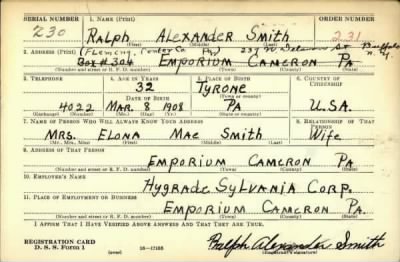 SERIAL NUMBER 1. NAME (Print) ORDER NUMBER
230 RALPH ALEXANDER SMITH 231
(First) (Middle) (Last)
2. ADDRESS (Print) (Fleming, Co Pa) 237 W. Delavan St Buffalo N.Y.
Box #304 EMPORIUM CAMERON PA
(Number and street or R. F. D. number) (Town) (County) (State)
3. TELEPHONE 4. AGE IN YEARS 5. PLACE OF BIRTH 6. COUNTRY OF CITIZENSHIP
32 TYRONE
DATE OF BIRTH (Town or county)
4022 MAR. 8 1908 PA U.S.A.
(Mo.) (Day) (Yr.) (State or country)
7. NAME OF PERSON WHO WILL ALWAYS KNOW YOUR ADDRESS 8. RELATIONSHIP OF THAT PERSON
MRS. ELONA MAE SMITH Wife
(Mr., Mrs., Miss) (First) (Middle) (Last)
9. ADDRESS OF THAT PERSON
EMPORIUM CAMERON PA
(Number and street or R. F. D. number) (Town) (County) (State)
10. EMPLOYER'S NAME
HYGRADE SYLVANIA CORP.
11. PLACE OF EMPLOYMENT OR BUSINESS
EMPORIUM CAMERON PA.
(Number and street or R. F. D. number) (Town) (County) (State)
I AFFIRM THAT I HAVE VERIFIED ABOVE ANSWERS AND THAT THEY ARE TRUE.
REGISTRATION CARD
D. S. S. Form 1 (over) 16—17105 Ralph Alexander Smith
(Registrant's signature)